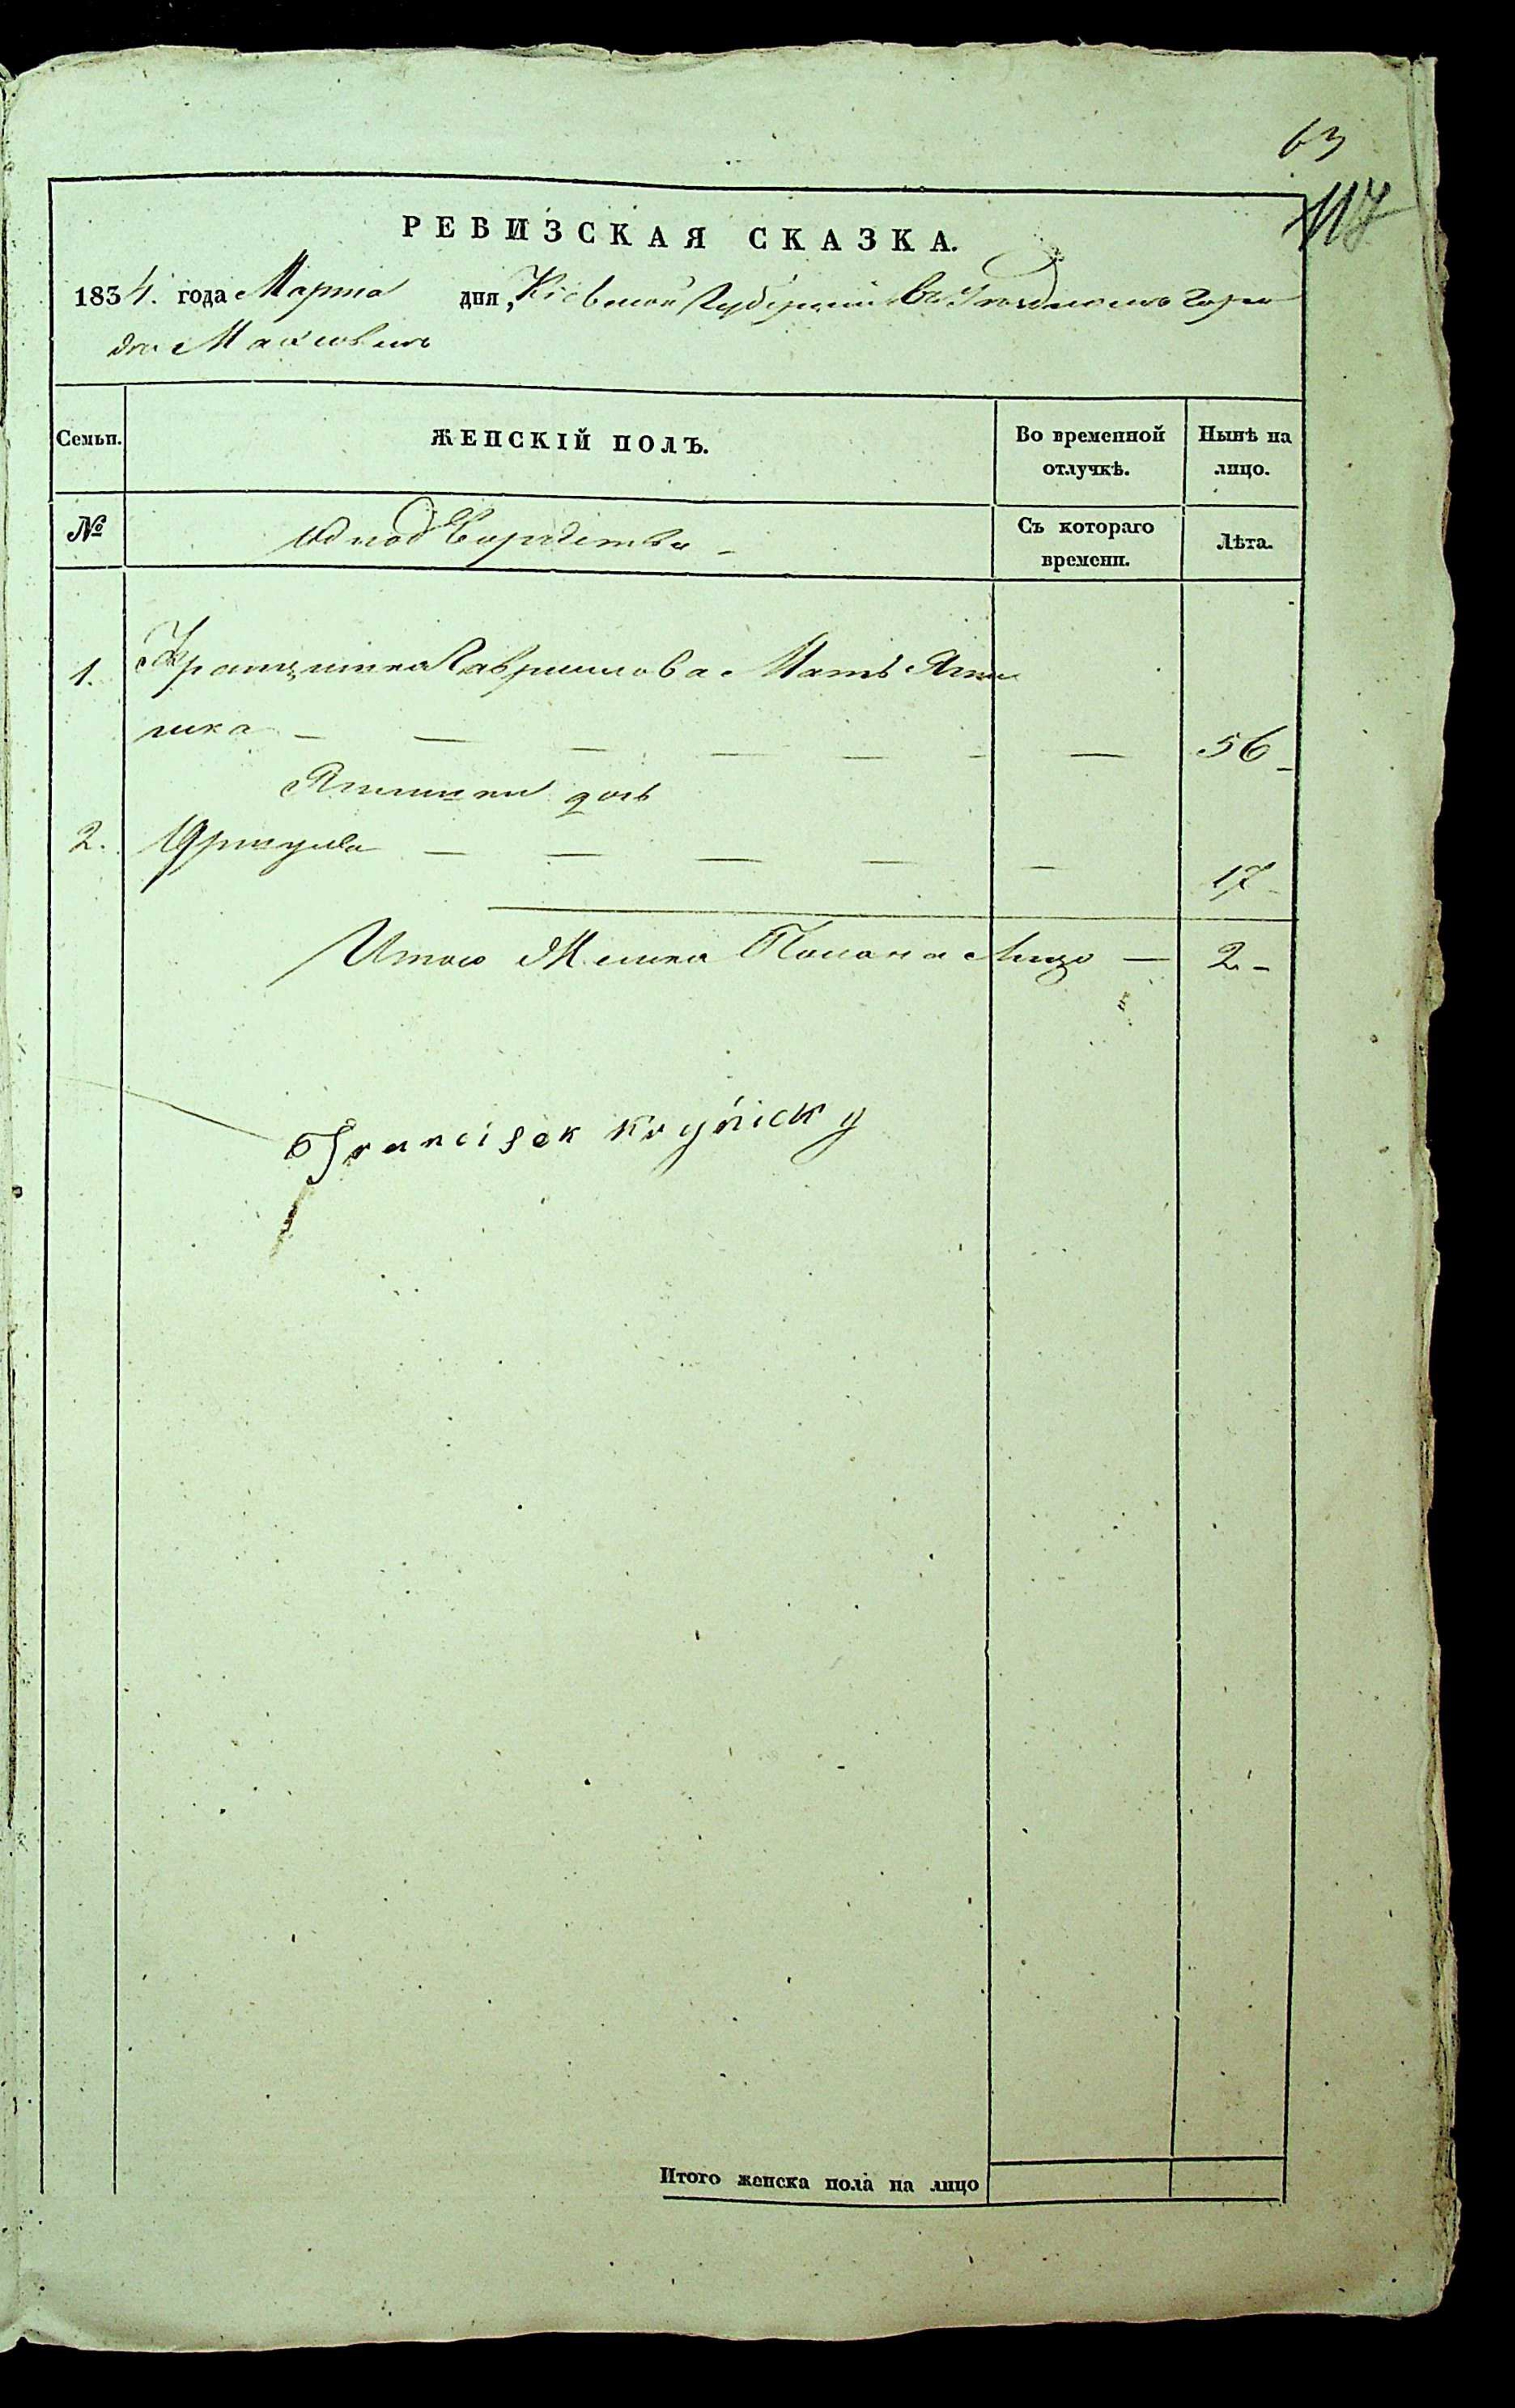 63
117
РЕВИЗСКАЯ СКАЗКА.
1834. года Марта дня, Кіевской Губерніи въ Уездномъ горо
де Махновке
Семьи. ЖЕНСКІЙ ПОЛЪ. Во временной отлучкѣ. Нынѣ на лицо.
№ Однодворства Съ котораго времени. Лѣта.
1. Францишка Гаврилова Мать
56
дочь
2. Юркула
17
Итого Женска Пола на Лицо — 2
Francisek Kryńicky
Итого женска пола на лицо